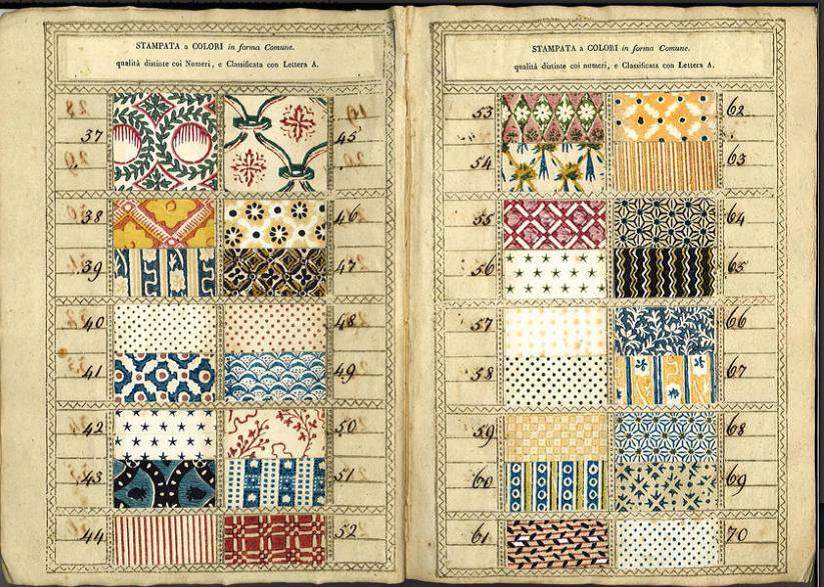 STAMPATA a COLORI in forma Comune.
qualità distinte coi Numeri, e Classificata con Lettera A.
37
38
39
40
41
42
43
44
45
46
47
48
49
50
51
52
STAMPATA a COLORI in forma Comune.
qualità distinte coi numeri, e Classificata con Lettera A.
53
54
55
56
57
58
59
60
61
62
63
64
65
66
67
68
69
70